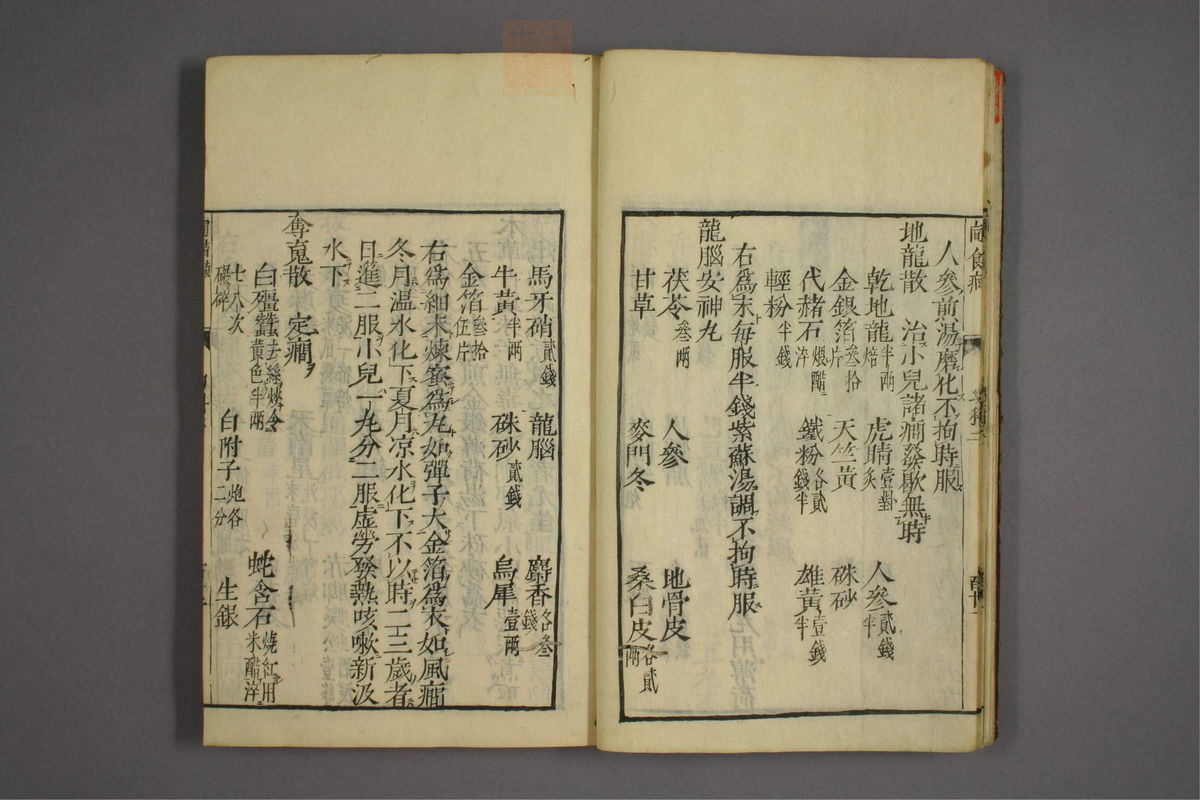 人參前湯磨化不拘時服
地龍散 治小兒諸癎發歇無時
乾地龍半兩焙 虎睛壹對炙 人參貳錢半
金銀箔叄拾片 天竺黃 硃砂
代赭石煆醋淬 鐵粉各貳錢半 雄黃壹錢半
輕粉半錢
右爲末每服半錢紫蘇湯調不拘時服
龍腦安神丸
茯苓叄兩 人參 地骨皮
甘草 麥門冬 桑白皮各貳兩
馬牙硝貳錢 龍腦 麝香各叄錢
牛黃半兩 硃砂貳錢 烏犀壹兩
金箔叄拾伍片
右爲細末煉蜜爲丸如彈子大金箔爲衣如風癎
冬月溫水化下夏月凉水化下不以時二三歲者
日進二服小兒一丸分二服虛勞發熱咳嗽新汲
水下
奪䰟散 定癎
白殭蠶去絲燥令黃色半兩 蛇含石燒紅用米醋淬
七八次碾碎 白附子炮各二分 生銀